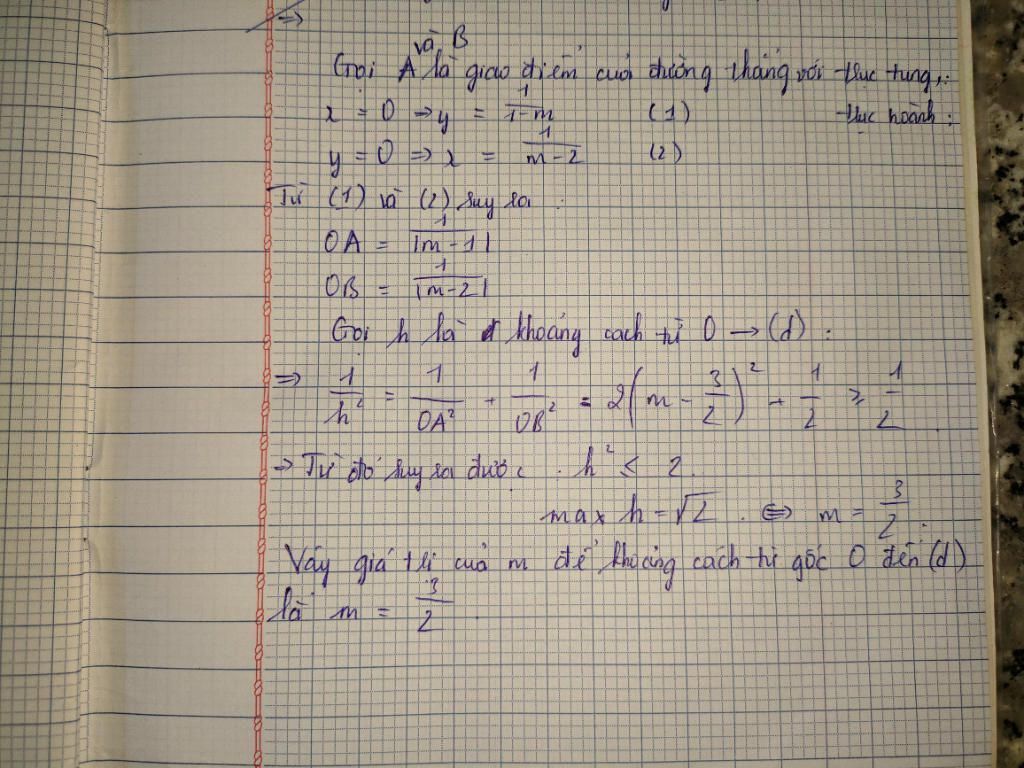 ⇒
và B
Gọi A là giao điểm của đường thẳng với trục tung,:
x = 0 ⇒ y = 1/(1-m) (1) trục hoành:
y = 0 ⇒ x = 1/(m-2) (2)
Từ (1) và (2) suy ra:
OA = 1/|m-1|
OB = 1/|m-2|
Gọi h là khoảng cách từ O → (d):
⇒ 1/h² = 1/OA² + 1/OB² = 2(m - 3/2)² + 1/2 ≥ 1/2
⇒ Từ đó suy ra được: h² ≤ 2.
max h = √2. ⇔ m = 3/2.
Vậy giá trị của m để khoảng cách từ gốc O đến (d)
là m = 3/2.